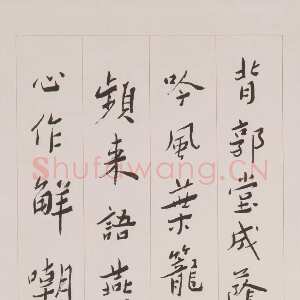 背郭堂成蔭
吟風葉籠
頻来語燕
心作解嘲
Shufawang.CN